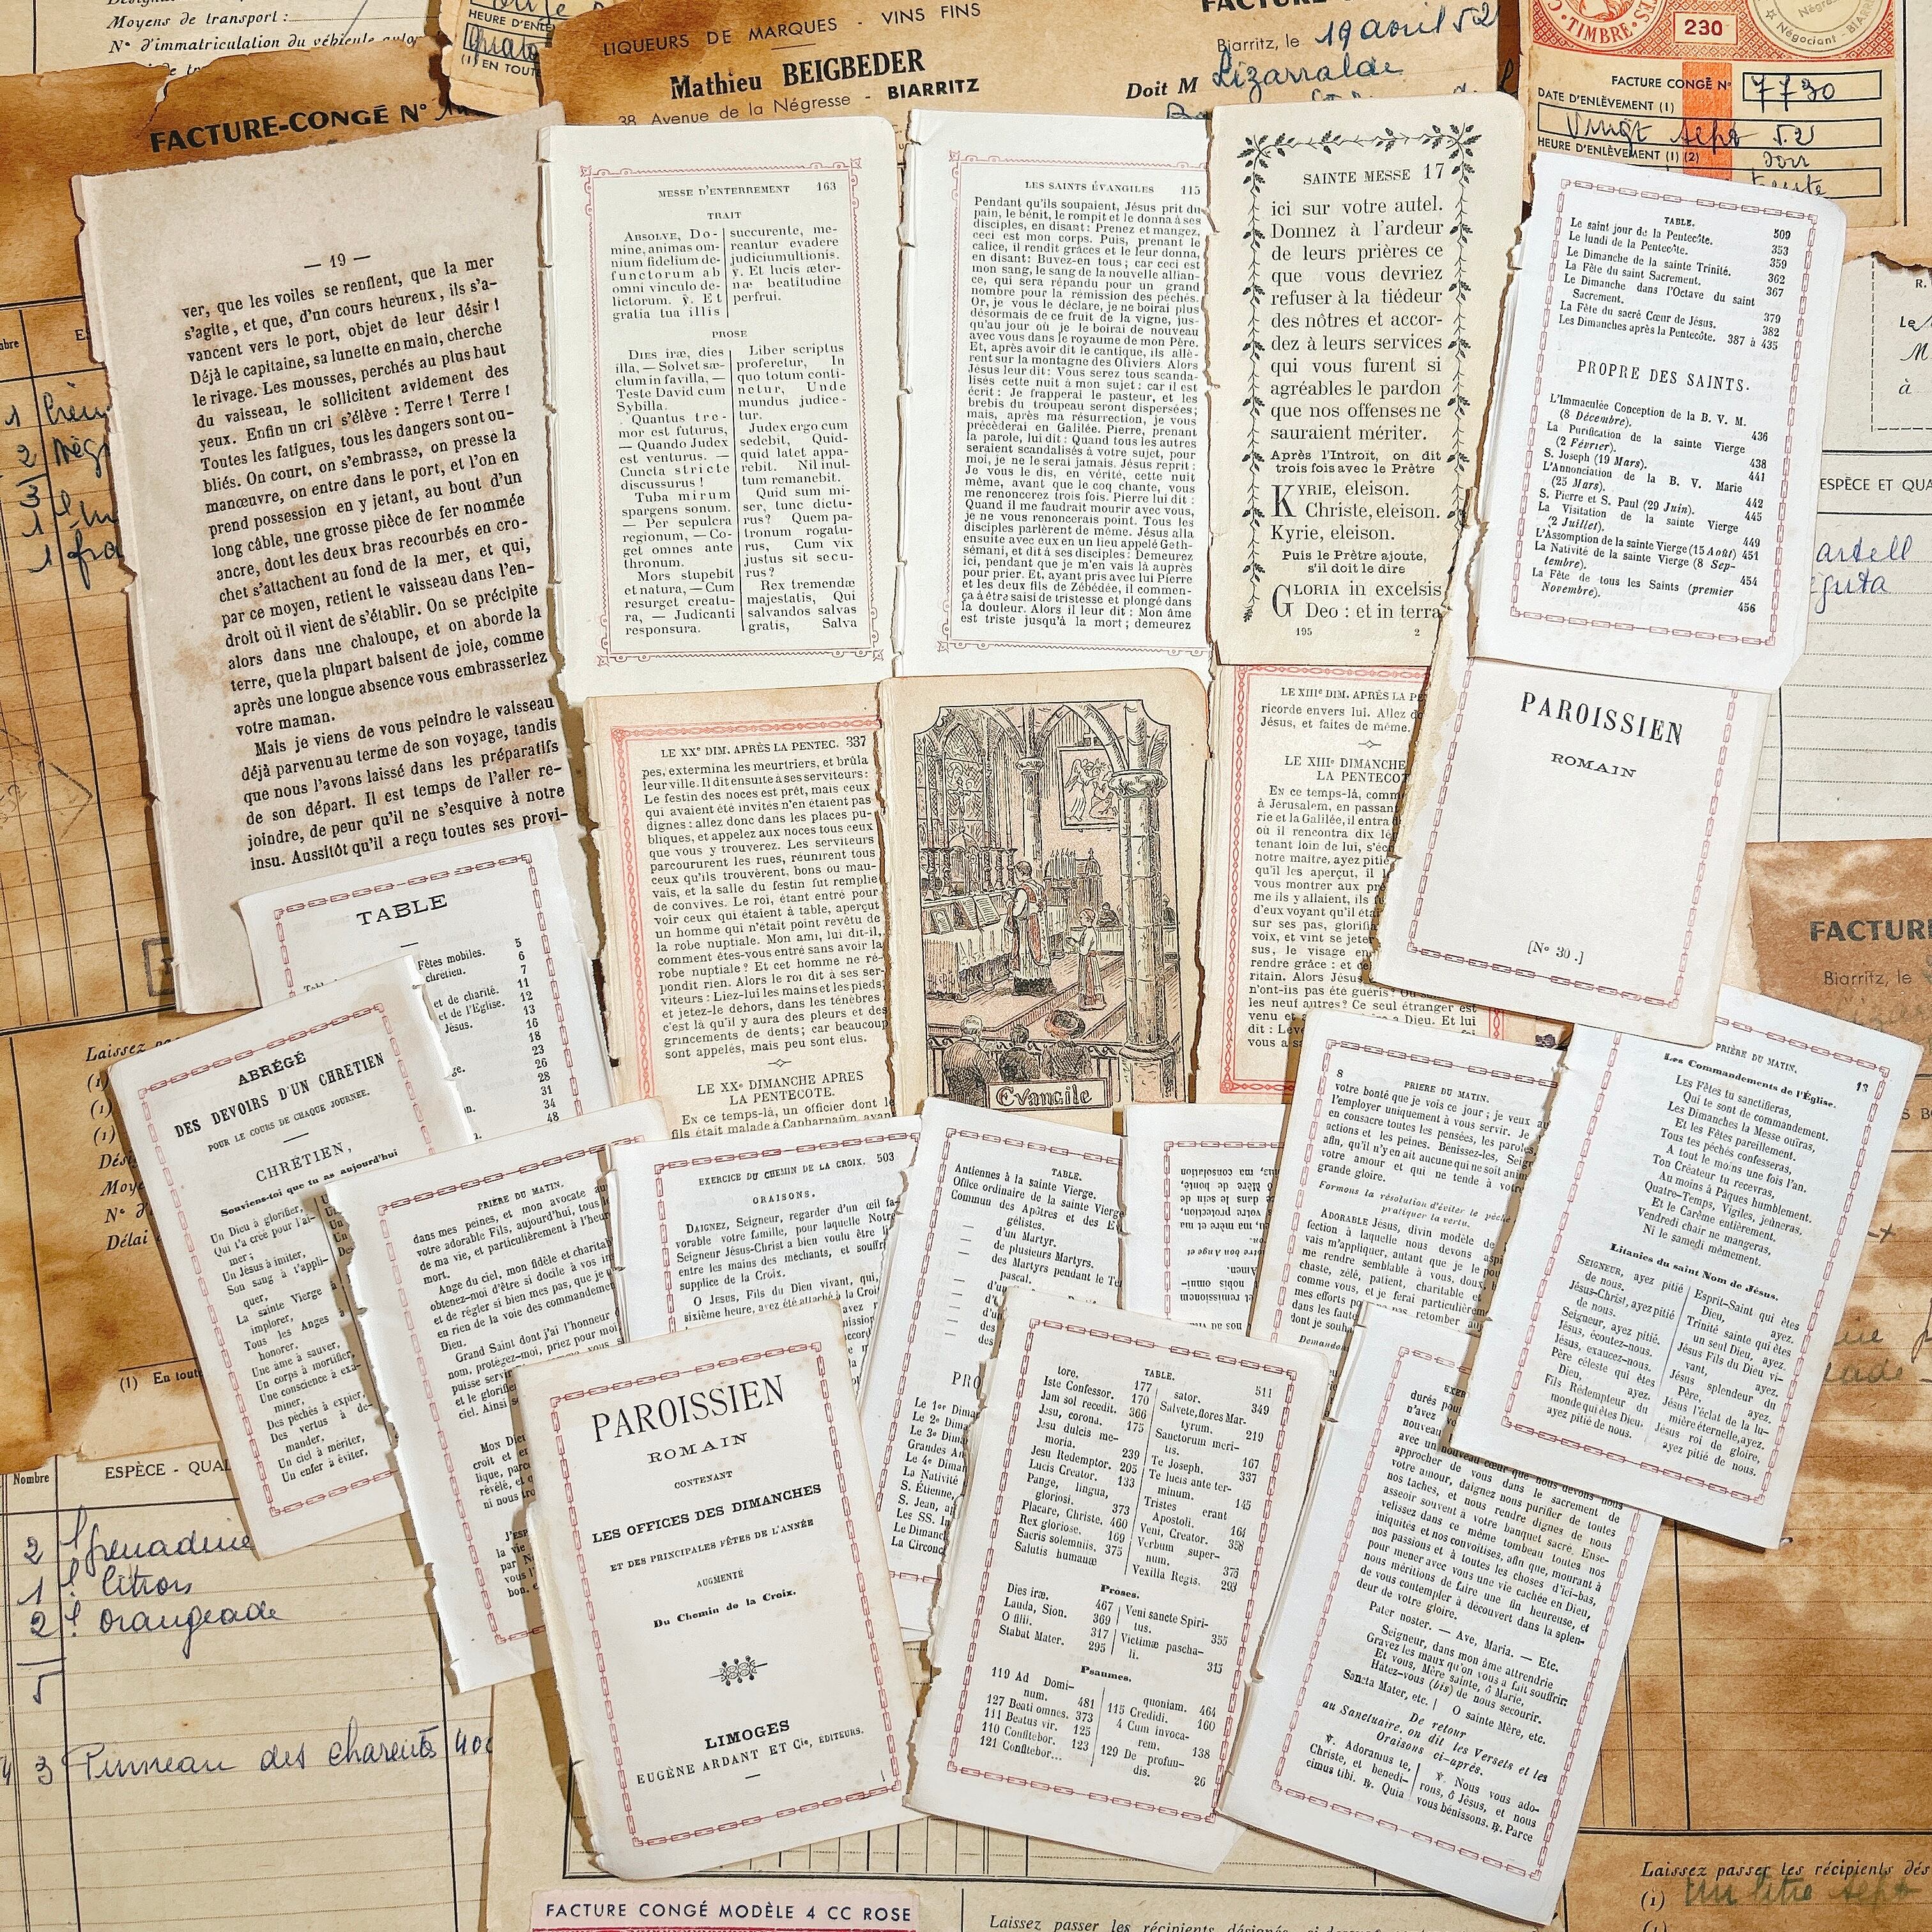 Moyens de transport :
N° d'immatriculation du véhicule
HEURE D'ENLÈ
(1) EN TOUT
LIQUEURS DE MARQUES - VINS FINS
Mathieu BEIGBEDER
38, Avenue de la Négresse - BIARRITZ
Biarritz, le 19 avril 52
Doit M Lizarralde
TIMBRE
230
Négociant - BIARR
FACTURE CONGÉ N° 7730
DATE D'ENLÈVEMENT (1)
Vingt sept 52
HEURE D'ENLÈVEMENT (1) (2)
FACTURE-CONGÉ N°
— 19 —
ver, que les voiles se renflent, que la mer
s'agite, et que, d'un cours heureux, ils s'a-
vancent vers le port, objet de leur désir !
Déjà le capitaine, sa lunette en main, cherche
le rivage. Les mousses, perchés au plus haut
du vaisseau, le sollicitent avidement des
yeux. Enfin un cri s'élève : Terre ! Terre !
Toutes les fatigues, tous les dangers sont ou-
bliés. On court, on s'embrasse, on presse la
manœuvre, on entre dans le port, et l'on en
prend possession en y jetant, au bout d'un
long câble, une grosse pièce de fer nommée
ancre, dont les deux bras recourbés en cro-
chet s'attachent au fond de la mer, et qui,
par ce moyen, retient le vaisseau dans l'en-
droit où il vient de s'établir. On se précipite
alors dans une chaloupe, et on aborde la
terre, que la plupart baisent de joie, comme
après une longue absence vous embrasseriez
votre maman.
Mais je viens de vous peindre le vaisseau
déjà parvenu au terme de son voyage, tandis
que nous l'avons laissé dans les préparatifs
de son départ. Il est temps de l'aller re-
joindre, de peur qu'il ne s'esquive à notre
insu. Aussitôt qu'il a reçu toutes ses provi-
MESSE D'ENTERREMENT 463
TRAIT
ABSOLVE, Do-
mine, animas om-
nium fidelium de-
functorum ab
omni vinculo de-
lictorum. ℣. Et
gratia tua illis
succurente, me-
reantur evadere
judicium ultionis.
℣. Et lucis æter-
næ beatitudine
perfrui.
PROSE
DIES iræ, dies
illa, — Solvet sæ-
clum in favilla, —
Teste David cum
Sybilla.
Quantus tre-
mor est futurus,
— Quando Judex
est venturus. —
Cuncta stricte
discussurus !
Tuba mirum
spargens sonum.
— Per sepulcra
regionum, — Co-
get omnes ante
thronum.
Mors stupebit
et natura, — Cum
resurget creatu-
ra, — Judicanti
responsura.
Liber scriptus
proferetur, In
quo totum conti-
netur, Unde
mundus judice-
tur.
Judex ergo cum
sedebit, Quid-
quid latet appa-
rebit. Nil inul-
tum remanebit.
Quid sum mi-
ser, tunc dictu-
rus? Quem pa-
tronum rogatu-
rus, Cum vix
justus sit secu-
rus?
Rex tremendæ
majestatis, Qui
salvandos salvas
gratis, Salva
LES SAINTS ÉVANGILES 115
Pendant qu'ils soupaient, Jésus prit du
pain, le bénit, le rompit et le donna à ses
disciples, en disant : Prenez et mangez,
ceci est mon corps. Puis, prenant le
calice, il rendit grâces et le leur donna,
en disant: Buvez-en tous ; car ceci est
mon sang, le sang de la nouvelle allian-
ce, qui sera répandu pour un grand
nombre pour la rémission des péchés.
Or, je vous le déclare, je ne boirai plus
désormais de ce fruit de la vigne, jus-
qu'au jour où je le boirai de nouveau
avec vous dans le royaume de mon Père.
Et, après avoir dit le cantique, ils allè-
rent sur la montagne des Oliviers. Alors
Jésus leur dit : Vous serez tous scanda-
lisés cette nuit à mon sujet : car il est
écrit : Je frapperai le pasteur, et les
brebis du troupeau seront dispersées;
mais, après ma résurrection, je vous
précèderai en Galilée. Pierre, prenant
la parole, lui dit : Quand tous les autres
seraient scandalisés à votre sujet, pour
moi, je ne le serai jamais. Jésus reprit :
Je vous le dis, en vérité, cette nuit
même, avant que le coq chante, vous
me renoncerez trois fois. Pierre lui dit :
Quand il me faudrait mourir avec vous,
je ne vous renoncerais point. Tous les
disciples parlèrent de même. Jésus alla
ensuite avec eux en un lieu appelé Geth-
sémani, et dit à ses disciples : Demeurez
ici, pendant que je m'en vais là auprès
pour prier. Et, ayant pris avec lui Pierre
et les deux fils de Zébédée, il commen-
ça à être saisi de tristesse et plongé dans
la douleur. Alors il leur dit : Mon âme
est triste jusqu'à la mort ; demeurez
SAINTE MESSE 17
ici sur votre autel.
Donnez à l'ardeur
de leurs prières ce
que vous devriez
refuser à la tiédeur
des nôtres et accor-
dez à leurs services
qui vous furent si
agréables le pardon
que nos offenses ne
sauraient mériter.
Après l'Introït, on dit
trois fois avec le Prêtre
KYRIE, eleison.
Christe, eleison.
Kyrie, eleison.
Puis le Prêtre ajoute,
s'il doit le dire
GLORIA in excelsis
Deo : et in terra
195 2
TABLE. 509
Le saint jour de la Pentecôte. 353
Le lundi de la Pentecôte. 359
Le Dimanche de la sainte Trinité. 362
La Fête du saint Sacrement. 367
Le Dimanche dans l'Octave du saint
Sacrement. 379
La Fête du sacré Cœur de Jésus. 382
Les Dimanches après la Pentecôte. 387 à 435
PROPRE DES SAINTS.
L'Immaculée Conception de la B. V. M.
(8 Décembre). 436
La Purification de la sainte Vierge
(2 Février). 438
S. Joseph (19 Mars). 441
L'Annonciation de la B. V. Marie
(25 Mars). 442
S. Pierre et S. Paul (29 Juin). 445
La Visitation de la sainte Vierge
(2 Juillet). 449
L'Assomption de la sainte Vierge (15 Août) 451
La Nativité de la sainte Vierge (8 Sep-
tembre). 454
La Fête de tous les Saints (premier
Novembre). 456
ESPÈCE ET QUA
LE XXᵉ DIM. APRÈS LA PENTEC. 337
pes, extermina les meurtriers, et brûla
leur ville. Il dit ensuite à ses serviteurs:
Le festin des noces est prêt, mais ceux
qui avaient été invités n'en étaient pas
dignes : allez donc dans les places pu-
bliques, et appelez aux noces tous ceux
que vous y trouverez. Les serviteurs
parcoururent les rues, réunirent tous
ceux qu'ils trouvèrent, bons ou mau-
vais, et la salle du festin fut remplie
de convives. Le roi, étant entré pour
voir ceux qui étaient à table, aperçut
un homme qui n'était point revêtu de
la robe nuptiale. Mon ami, lui dit-il,
comment êtes-vous entré sans avoir la
robe nuptiale? Et cet homme ne ré-
pondit rien. Alors le roi dit à ses ser-
viteurs : Liez-lui les mains et les pieds,
et jetez-le dehors, dans les ténèbres :
c'est là qu'il y aura des pleurs et des
grincements de dents; car beaucoup
sont appelés, mais peu sont élus.
LE XXᵉ DIMANCHE APRES
LA PENTECOTE.
En ce temps-là, un officier dont le
fils était malade à Capharnaüm, ayant
Évangile
LE XIIIᵉ DIM. APRÈS LA PE
ricorde envers lui. Allez do
Jésus, et faites de même.
LE XIIIᵉ DIMANCHE
LA PENTECOT
En ce temps-là, comm
à Jérusalem, en passan
rie et la Galilée, il entra d
où il rencontra dix lé
tenant loin de lui, s'éc
notre maître, ayez pitié
qu'il les aperçut, il l
vous montrer aux pr
me ils y allaient, ils f
d'eux voyant qu'il étai
sur ses pas, glorifia
voix, et vint se jeter
sus, le visage en
rendre grâce : et ce
ritain. Alors Jésus
n'ont-ils pas été guéris?
les neuf autres? Ce seul étranger est
venu à Dieu. Et lui
dit : Leve
vous a sa
PAROISSIEN
ROMAIN
[N° 30.]
FACTURE
Biarritz, le
TABLE
Fêtes mobiles. 5
chretien. 6
7
et de charité. 11
et de l'Église. 12
Jésus. 13
16
18
23
26
28
31
34
48
ABRÉGÉ
DES DEVOIRS D'UN CHRETIEN
POUR LE COURS DE CHAQUE JOURNEE.
CHRÉTIEN,
Souviens-toi que tu as aujourd'hui
Un Dieu à glorifier,
Qui t'a créé pour l'ai-
mer ;
Un Jésus à imiter,
Son sang à t'appli-
quer,
La sainte Vierge à
implorer,
Tous les Anges à
honorer,
Une âme à sauver,
Un corps à mortifier,
Une conscience à exa-
miner,
Des péchés à expier,
Des vertus à de-
mander,
Un ciel à mériter,
Un enfer à éviter.
PRIÈRE DU MATIN.
dans mes peines, et mon avocate au
votre adorable Fils, aujourd'hui, tous
de ma vie, et particulièrement à l'heur
mort.
Ange du ciel, mon fidèle et charitab
obtenez-moi d'être si docile à vos in
et de régler si bien mes pas, que je
en rien de la voie des commandemen
Dieu.
Grand Saint dont j'ai l'honneur
nom, protégez-moi, priez pour moi
puisse servir
et le glorifier
ciel. Ainsi s
EXERCICE DU CHEMIN DE LA CROIX. 503
ORAISONS.
DAIGNEZ, Seigneur, regarder d'un œil fa-
vorable votre famille, pour laquelle Notre
Seigneur Jésus-Christ a bien voulu être li
entre les mains des méchants, et souffr
supplice de la Croix.
O Jesus, Fils du Dieu vivant, qui,
sixième heure, avez été attaché à la Croix
TABLE.
Antiennes à la sainte Vierge.
Office ordinaire de la sainte Vierge
Commun des Apôtres et des É
gélistes.
— d'un Martyr.
— de plusieurs Martyrs.
— des Martyrs pendant le Te
pascal.
PRO
Le 1er Dima
Le 2e Dima
Le 3e Dima
Grandes An
Le 4e Diman
La Nativité
S. Étienne,
S. Jean, a
Les SS. In
Le Dimanc
La Circonc
8 PRIERE DU MATIN.
votre bonté que je vois ce jour ; je veux au
l'employer uniquement à vous servir. Je
en consacre toutes les pensées, les paroles,
actions et les peines. Bénissez-les, Seign
afin, qu'il n'y en ait aucune qui ne soit anim
votre amour et qui ne tende à votre
grande gloire.
Formons la résolution d'éviter le péché
pratiquer la vertu.
ADORABLE Jésus, divin modèle de
fection à laquelle nous devons aspi
vais m'appliquer, autant que je le pou
me rendre semblable à vous, doux,
chaste, zélé, patient, charitable et
comme vous, et je ferai particulièrem
mes efforts pour ne pas retomber au
dans les faute
dont je souha
PRIÈRE DU MATIN. 13
Les Commandements de l'Église.
Les Fêtes tu sanctifieras,
Qui te sont de commandement.
Les Dimanches la Messe ouïras,
Et les Fêtes pareillement.
Tous tes péchés confesseras,
A tout le moins une fois l'an.
Ton Créateur tu recevras,
Au moins à Pâques humblement.
Quatre-Temps, Vigiles, jeûneras,
Et le Carême entièrement.
Vendredi chair ne mangeras,
Ni le samedi mêmement.
Litanies du saint Nom de Jésus.
SEIGNEUR, ayez pitié
de nous.
Jésus-Christ, ayez pitié
de nous.
Seigneur, ayez pitié.
Jésus, écoutez-nous.
Jésus, exaucez-nous.
Père céleste qui êtes
Dieu, ayez.
Fils Rédempteur du
monde qui êtes Dieu.
ayez pitié de nous.
Esprit-Saint qui êtes
Dieu, ayez.
Trinité sainte qui êtes
un seul Dieu, ayez.
Jésus Fils du Dieu vi-
vant, ayez.
Jésus splendeur du
Père, ayez.
Jésus l'éclat de la lu-
mière éternelle, ayez.
Jésus roi de gloire,
ayez pitié de nous.
PAROISSIEN
ROMAIN
CONTENANT
LES OFFICES DES DIMANCHES
ET DES PRINCIPALES FÊTES DE L'ANNÉE
AUGMENTÉ
Du Chemin de la Croix.
LIMOGES
EUGÈNE ARDANT ET Cie, EDITEURS.
TABLE. 511
tore. 177
Iste Confessor. 170
Jam sol recedit. 366
Jesu, corona. 175
Jesu dulcis me-
moria. 239
Jesu Redemptor. 205
Lucis Creator. 133
Pange, lingua,
gloriosi. 373
Placare, Christe. 460
Rex gloriose. 169
Sacris solemniis. 375
Salutis humanæ
sator. 349
Salvete, flores Mar-
tyrum. 219
Sanctorum meri-
tis. 167
Te Joseph. 337
Te lucis ante ter-
minum. 145
Tristes erant
Apostoli. 164
Veni, Creator. 358
Verbum super-
num. 373
Vexilla Regis. 293
Proses.
Dies iræ. 467
Lauda, Sion. 369
O filii. 317
Stabat Mater. 295
Veni sancte Spiri-
tus. 355
Victimæ pascha-
li. 315
Psaumes.
119 Ad Domi-
num. 481
127 Beati omnes. 373
111 Beatus vir. 125
110 Confitebor. 123
121 Confitebor...
quoniam. 464
115 Credidi. 160
4 Cum invoca-
rem. 138
129 De profun-
dis. 26
avec un nouveau cœur que nous devons nous
approcher de vous dans le sacrement de
votre amour, daignez nous purifier de toutes
nos taches, et nous rendre dignes de nous
asseoir souvent à votre banquet sacré. Ense-
velissez dans ce même tombeau toutes nos
iniquités et nos convoitises, afin que, mourant à
nos passions et à toutes les choses d'ici-bas,
pour mener avec vous une vie cachée en Dieu,
nous méritions de faire une fin heureuse, et
de vous contempler à découvert dans la splen-
deur de votre gloire.
Pater noster. — Ave, Maria. — Etc.
Seigneur, dans mon âme attendrie
Gravez les maux qu'on vous a fait souffrir;
Et vous, Mère sainte, ô Marie,
Hâtez-vous (bis) de nous secourir.
Sancta Mater, etc. | O sainte Mère, etc.
De retour
au Sanctuaire, on dit les Versets et les
Oraisons ci-après.
℣. Adoramus te,
Christe, et benedi-
cimus tibi. ℟. Quia
℣. Nous vous ado-
rons, ô Jésus, et nous
vous bénissons. ℟. Parce
Nombre
ESPÈCE - QUAL
2 l grenadine
1 l citron
2 l orangeade
5
3 Pinneau des charentes 400
FACTURE CONGÉ MODÈLE 4 CC ROSE
Laissez passer les récipients désignés
Laissez passer les récipients dés
(1) Un litre sept